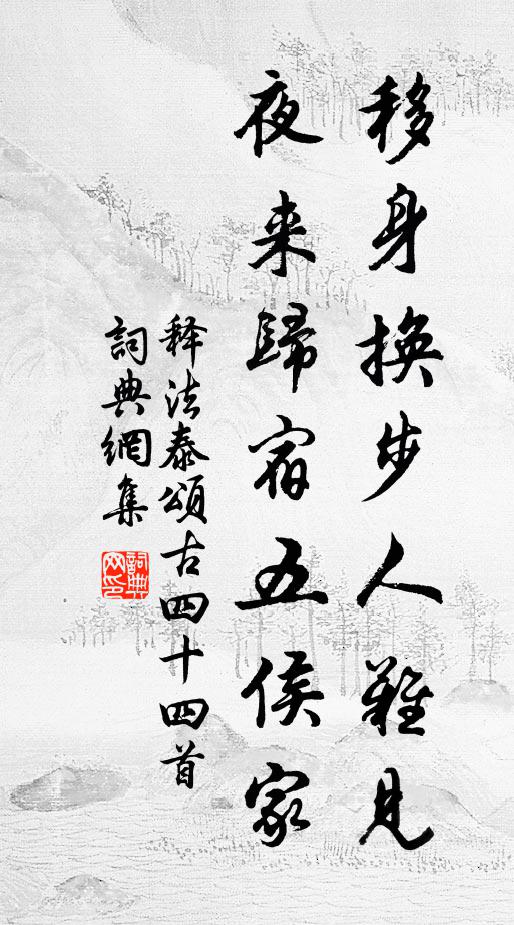 移身換步人難見
夜来歸宿五侯家
释法泰頌古四十四首
詞典網集
詞典網印